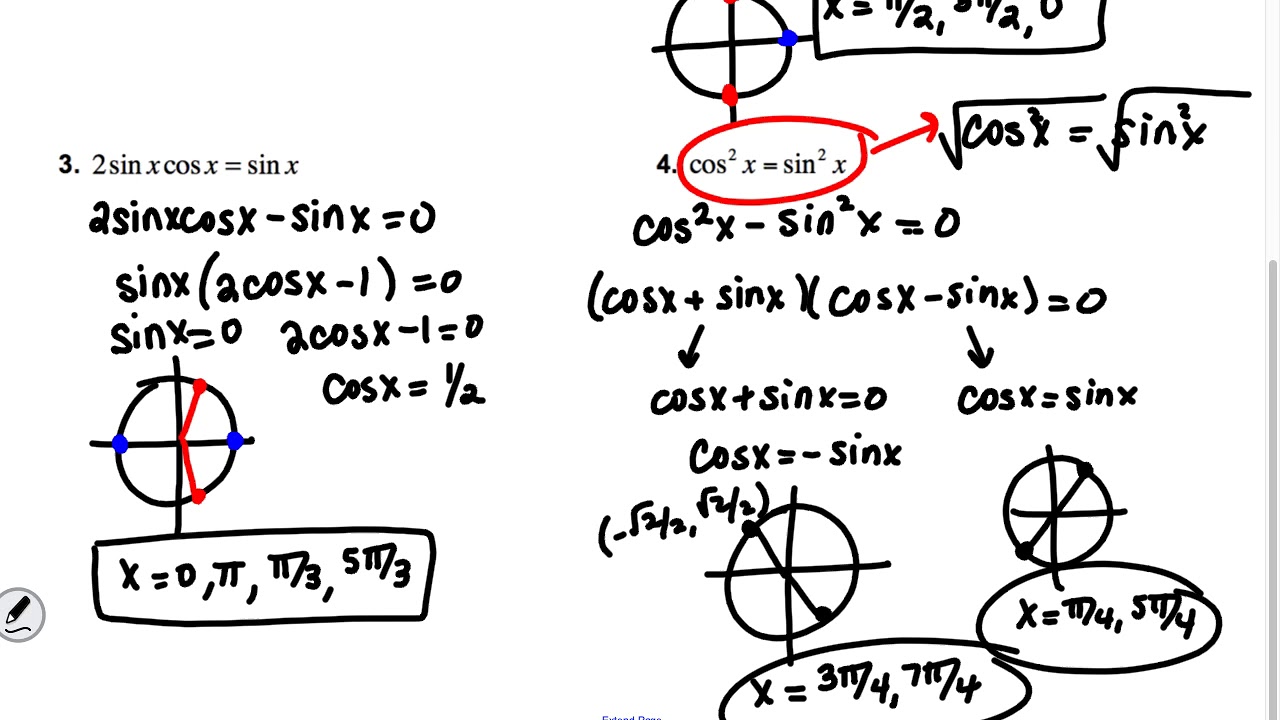 x = π/2, 3π/2, 0
3. 2 sin x cos x = sin x
2sinxcosx - sinx = 0
sinx(2cosx - 1) = 0
sinx = 0 2cosx - 1 = 0
cosx = 1/2
x = 0, π, π/3, 5π/3
4. cos² x = sin² x
√cos²x = √sin²x
cos²x - sin²x = 0
(cosx + sinx)(cosx - sinx) = 0
cosx + sinx = 0
cosx = - sinx
(-√2/2, √2/2)
x = 3π/4, 7π/4
cosx = sinx
x = π/4, 5π/4
Extend Page